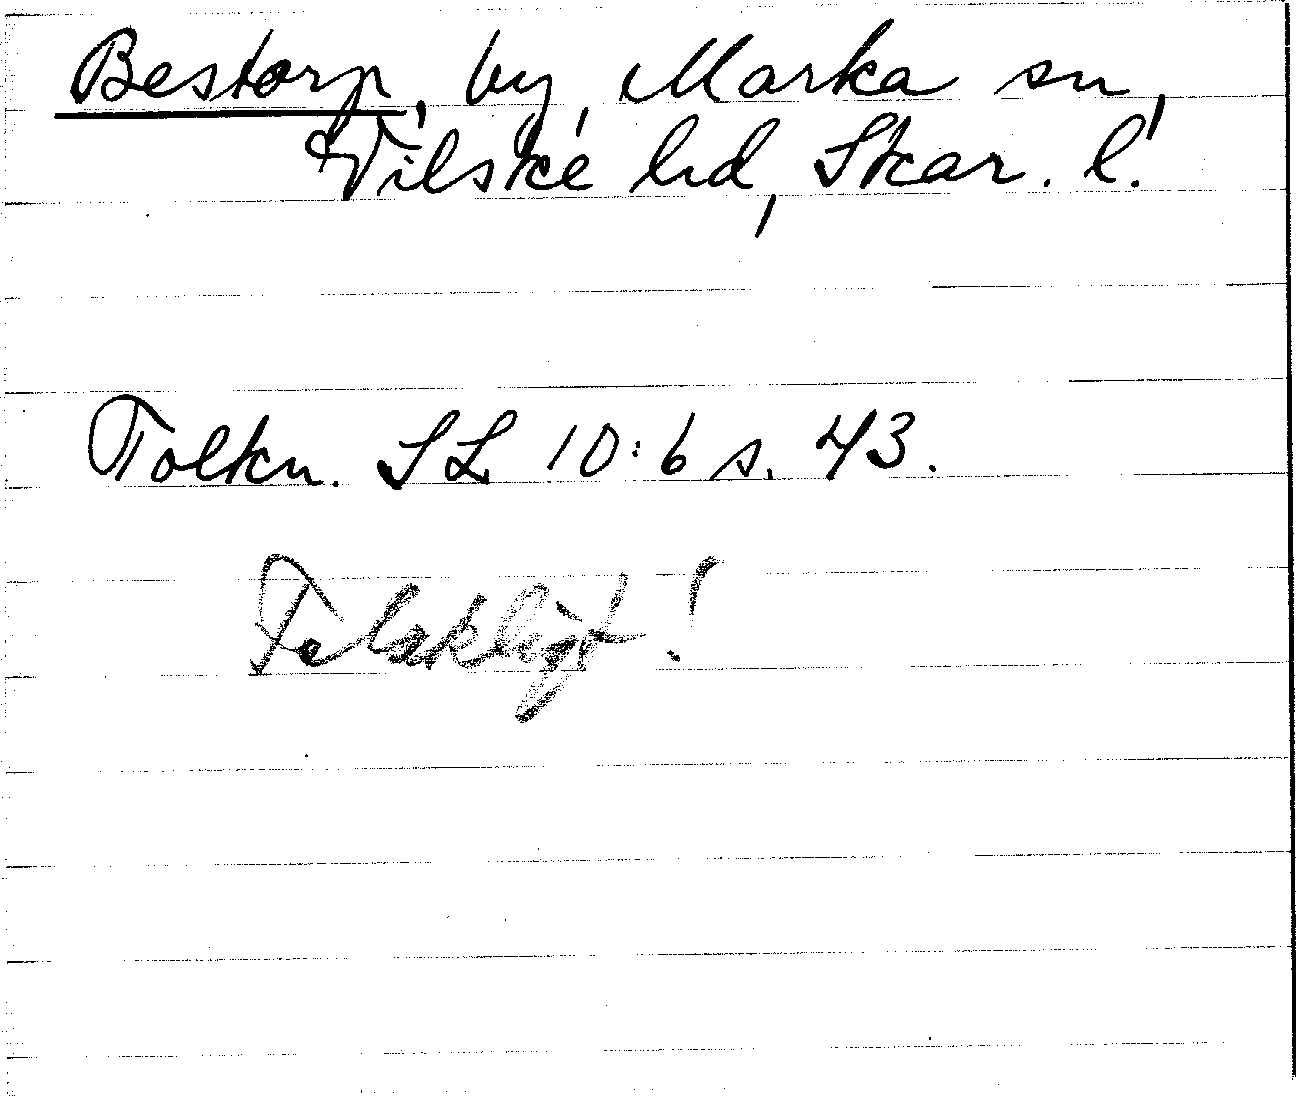 Bestorp, by, Marka sn,
Vilske hd, Skar. l.
Tolkn. SL 10:6 s. 43.
Felaktigt!